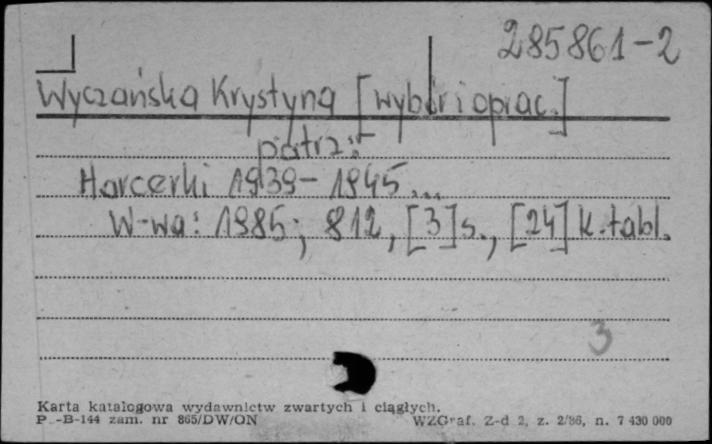 285861-2
Wyczańska Krystyna [wybór i oprac.]
patrz:
Harcerki 1939-1945...
W-wa: 1985; 812, [3]s., [24] k. tabl.
3
Karta katalogowa wydawnictw zwartych i ciągłych.
P -B-144 zam. nr 865/DW/ON WZGraf. Z-d 2, z. 2/86, n. 7 430 000